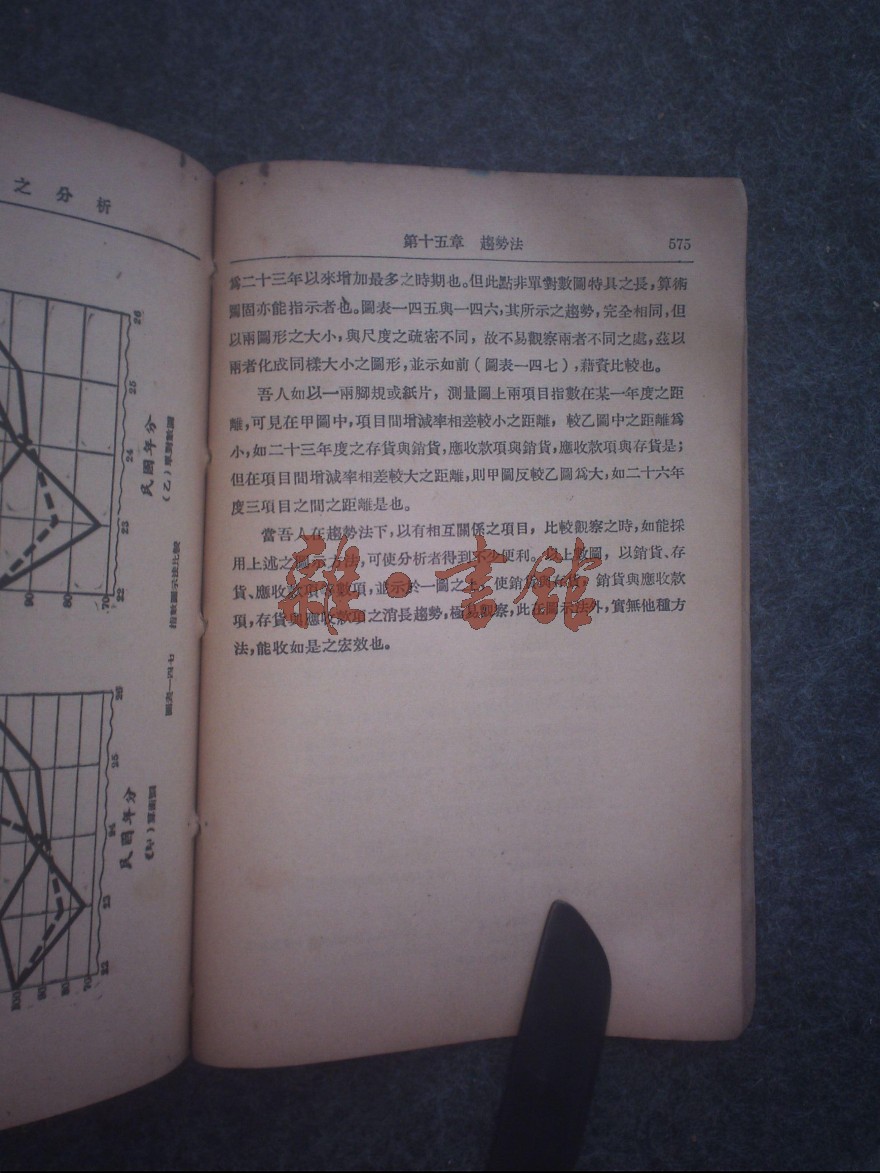 之分析
26
25
24
23
22
民國年分
(乙)單對數圖
90
80
70
指數圖示法比較
圖表一四七
26
25
24
23
22
民國年分
100
90
80
70
第十五章 趨勢法 575
爲二十三年以來增加最多之時期也。但此點非單對數圖特具之長,算術
圖固亦能指示者也。圖表一四五與一四六,其所示之趨勢,完全相同,但
以兩圖形之大小,與尺度之疏密不同,故不易觀察兩者不同之處,茲以
兩者化成同樣大小之圖形,並示如前(圖表一四七),藉資比較也。
吾人如以一兩脚規或紙片,測量圖上兩項目指數在某一年度之距
離,可見在甲圖中,項目間增減率相差較小之距離,較乙圖中之距離爲
小,如二十三年度之存貨與銷貨,應收款項與銷貨,應收款項與存貨是;
但在項目間增減率相差較大之距離,則甲圖反較乙圖爲大,如二十六年
度三項目之間之距離是也。
當吾人在趨勢法下,以有相互關係之項目,比較觀察之時,如能採
用上述之圖示方法,可使分析者得到不少便利。以上數圖,以銷貨、存
貨、應收款項等數項,並示於一圖之上,使銷貨與存貨,銷貨與應收款
項,存貨與應收款項之消長趨勢,極易觀察,此在圖示法外,實無他種方
法,能收如是之宏效也。
雜·書館